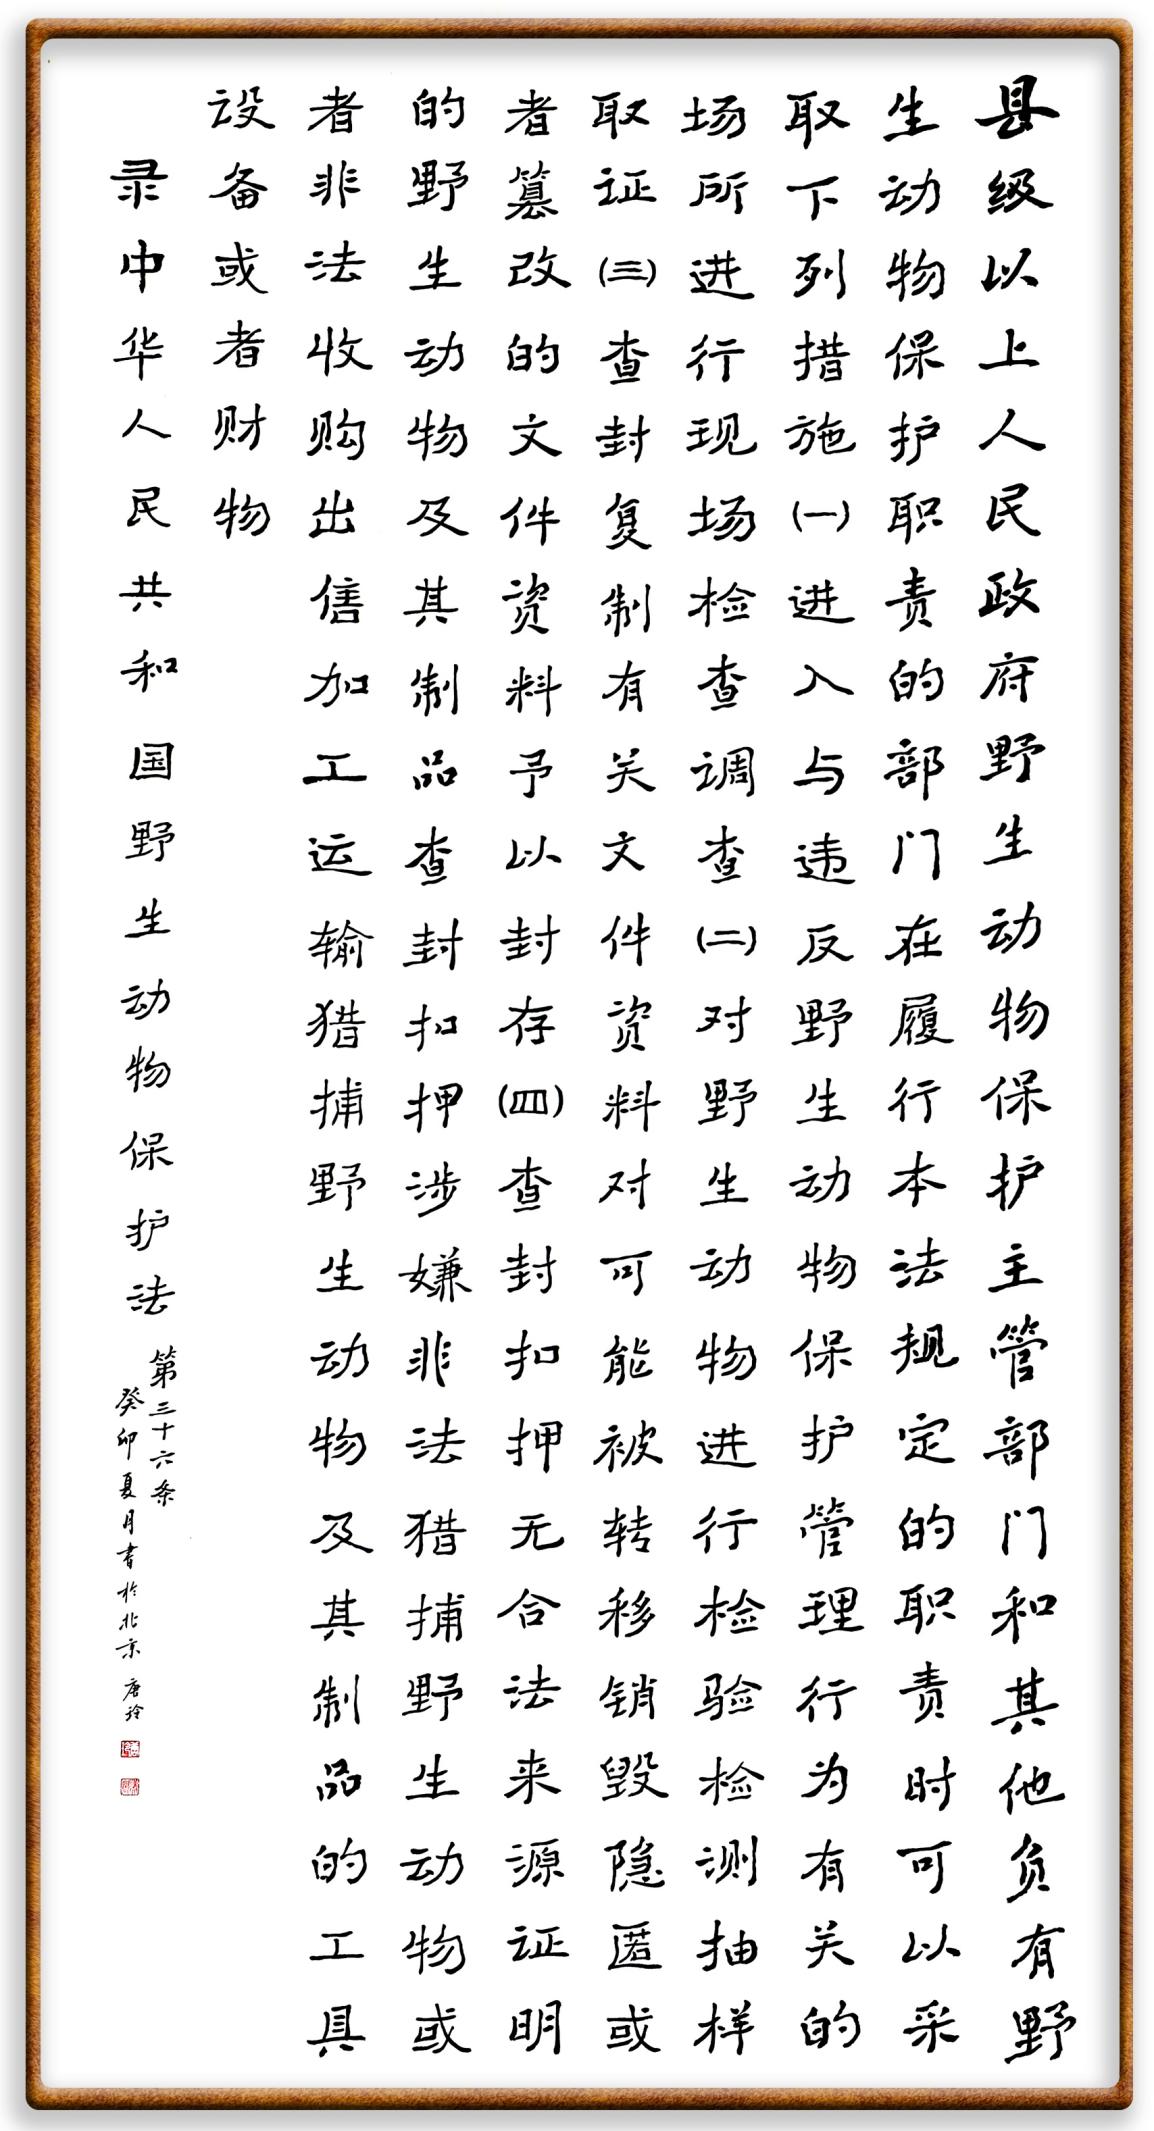 县级以上人民政府野生动物保护主管部门和其他负有野
生动物保护职责的部门在履行本法规定的职责时可以采
取下列措施(一)进入与违反野生动物保护管理行为有关的
场所进行现场检查调查(二)对野生动物进行检验检测抽样
取证(三)查封复制有关文件资料对可能被转移销毁隐匿或
者篡改的文件资料予以封存(四)查封扣押无合法来源证明
的野生动物及其制品查封扣押涉嫌非法猎捕野生动物或
者非法收购出售加工运输猎捕野生动物及其制品的工具
设备或者财物
录中华人民共和国野生动物保护法
第三十六条
癸卯夏月书于北京唐玲